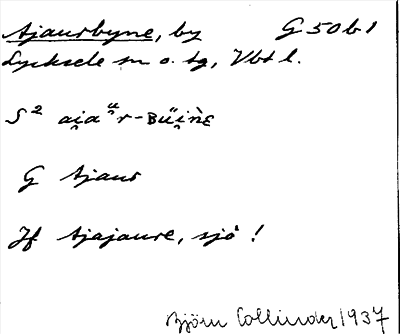 Ajaurbyne, by G 50 b 1
Lycksele sn o. tg, Vbt l.
S² ai̯aᵘ̈r-Büi̯ǹɛ
G Ajaur
Jf Ajajaure, sjö !
Björn Collinder 1937